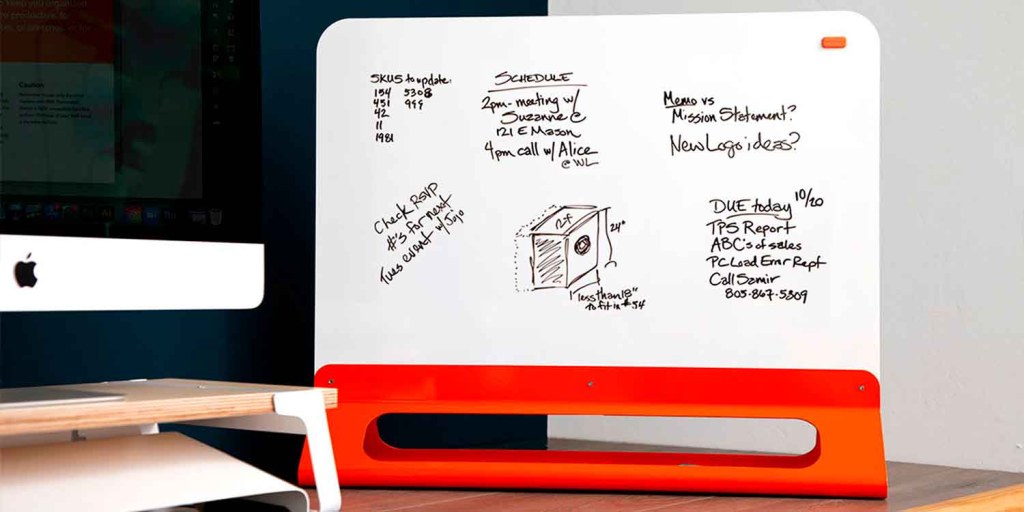 SKUS to update:
154 5308
451 999
42
11
1981
SCHEDULE
2pm- meeting w/
Suzanne @
121 E Mason
4pm call w/ Alice
@ WL
Memo vs
Mission Statement?
New Logo ideas?
Check RSVP
#'s for next
Tues event w/ JoJo
2x
24"
1" less than 18"
to fit in #54
DUE today 10/20
TPS Report
ABC's of sales
PC Load Error Rept
Call Samir
805-867-5309
Caution: